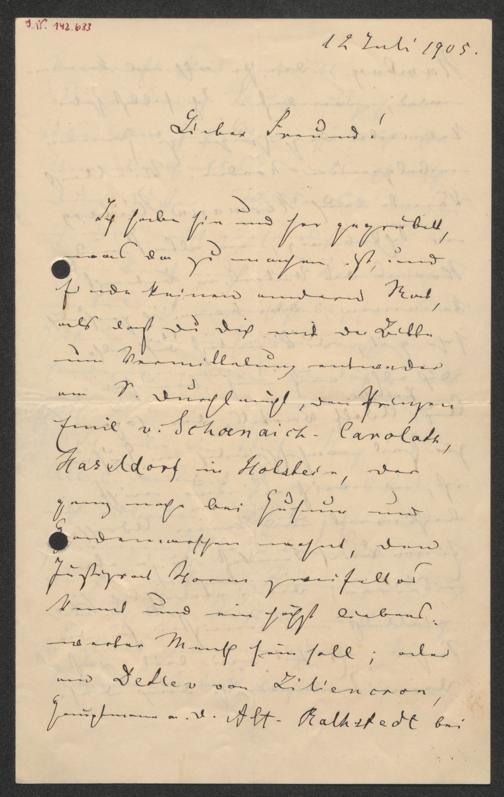 J.N. 142.633
12 Juli 1905.
Lieber Freund!
Ich habe hin und her gegrübelt,
was da zu machen ist, und
finde keinen anderen Rat,
als daß Du Dich mit der Bitte
um Vermittelung entweder
an S. Durchlaucht, den Prinzen
Emil v. Schoenaich-Carolath,
Haseldorf in Holstein, der
ganz nahe bei Husum und
wohnt, den
Justizrat Storm zweifellos
kennt und ein höchst liebens-
werter Mensch sein soll; oder
an Detlev von Liliencron,
Hauptmann a. D. Alt-Rahlstedt bei